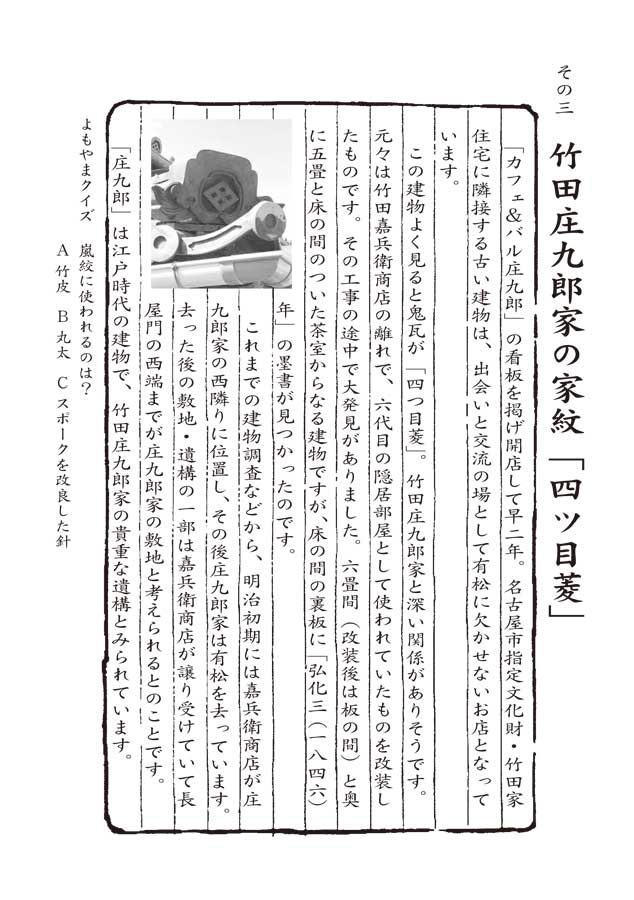 その三
竹田庄九郎家の家紋「四ツ目菱」
「カフェ&バル庄九郎」の看板を掲げ開店して早二年。名古屋市指定文化財・竹田家
住宅に隣接する古い建物は、出会いと交流の場として有松に欠かせないお店となって
います。
この建物よく見ると鬼瓦が「四つ目菱」。竹田庄九郎家と深い関係がありそうです。
元々は竹田嘉兵衛商店の離れで、六代目の隠居部屋として使われていたものを改装し
たものです。その工事の途中で大発見がありました。六畳間(改装後は板の間)と奥
に五畳と床の間のついた茶室からなる建物ですが、床の間の裏板に「弘化三(一八四六)
年」の墨書が見つかったのです。
これまでの建物調査などから、明治初期には嘉兵衛商店が庄
九郎家の西隣りに位置し、その後庄九郎家は有松を去っています。
去った後の敷地・遺構の一部は嘉兵衛商店が譲り受けていて長
屋門の西端までが庄九郎家の敷地と考えられるとのことです。
「庄九郎」は江戸時代の建物で、竹田庄九郎家の貴重な遺構とみられています。
よもやまクイズ 嵐絞に使われるのは?
A 竹皮 B 丸太 C スポークを改良した針